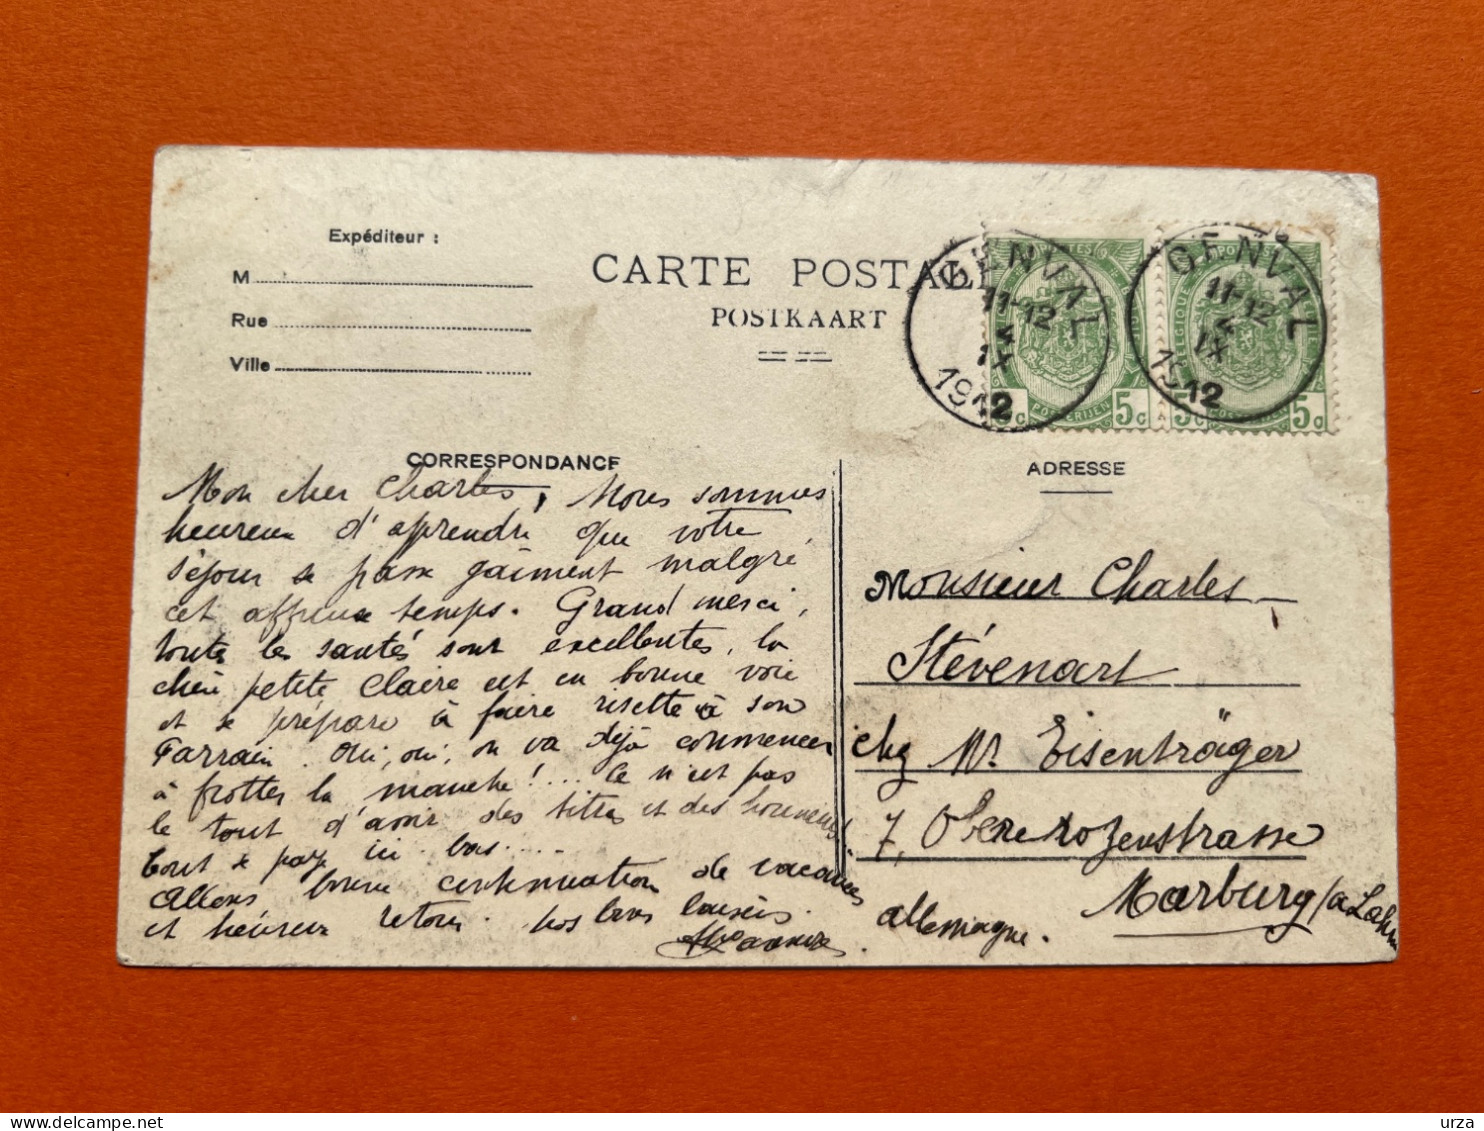 Expéditeur :
M
Rue
Ville
CARTE POSTALE
POSTKAART
GENVAL
11-12
4
IX
1912
GENVAL
11-12
4
IX
1912
POSTES
POSTERIJEN
5c
BELGIQUE
5c 5c
CORRESPONDANCE
Mon cher Charles, Nous sommes
heureux d'aprendre que votre
séjour se passe gaiment malgré
cet affreux temps. Grand merci,
toutes les santés sont excellentes, la
chère petite Claire est en bonne voie
et se prépare à faire risette à son
Parrain. Oui, oui, on va déjà commencer
à frotter la manche!... Ce n'est pas
le tout d'avoir des titres et des honneurs
tout se paye ici bas.....
Allons bonne continuation de vacances
et heureux retour. Nos bons baisers.
ADRESSE
Monsieur Charles
Stévenart
chez Mr Eisenträger
7, Obere rozenstrasse
Marburg /a Lahn
Allemagne.
delcampe.net
urza